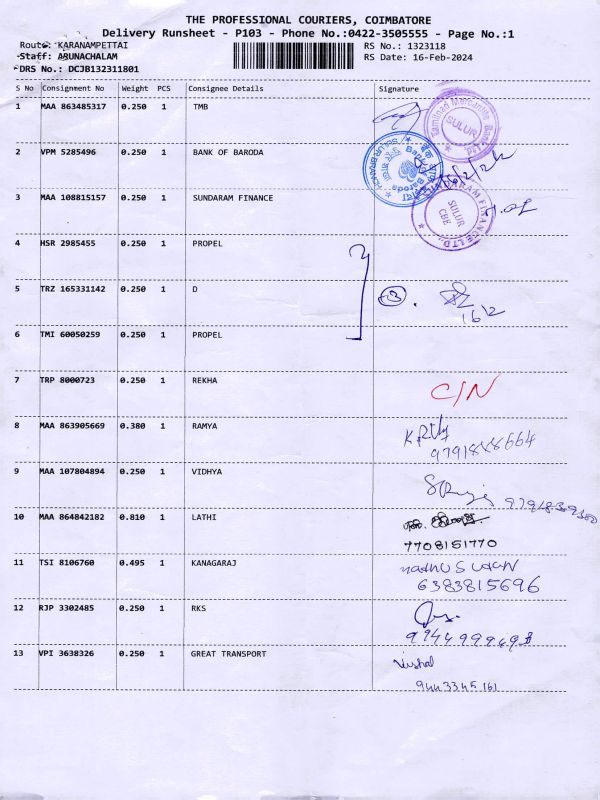 THE PROFESSIONAL COURIERS, COIMBATORE
Delivery Runsheet - P103 - Phone No.:0422-3505555 - Page No.:1
Route: KARANAMPETTAI RS No.: 1323118
Staff: ARUNACHALAM RS Date: 16-Feb-2024
DRS No.: DCJB132311801
S No Consignment No Weight PCS Consignee Details Signature
1 MAA 863485317 0.250 1 TMB
SULUR
2 VPM 5285496 0.250 1 BANK OF BARODA
3 MAA 108815157 0.250 1 SUNDARAM FINANCE
SULUR
CBE
4 HSR 2985455 0.250 1 PROPEL
5 TRZ 165331142 0.250 1 D 3
16/2
6 TMI 60050259 0.250 1 PROPEL
7 TRP 8000723 0.250 1 REKHA C/N
8 MAA 863905669 0.380 1 RAMYA
9791888664
9 MAA 107804894 0.250 1 VIDHYA
10 MAA 864842182 0.810 1 LATHI
7708151770
11 TSI 8106760 0.495 1 KANAGARAJ
6383815696
12 RJP 3302485 0.250 1 RKS
13 VPI 3638326 0.250 1 GREAT TRANSPORT Vishal
9443345161